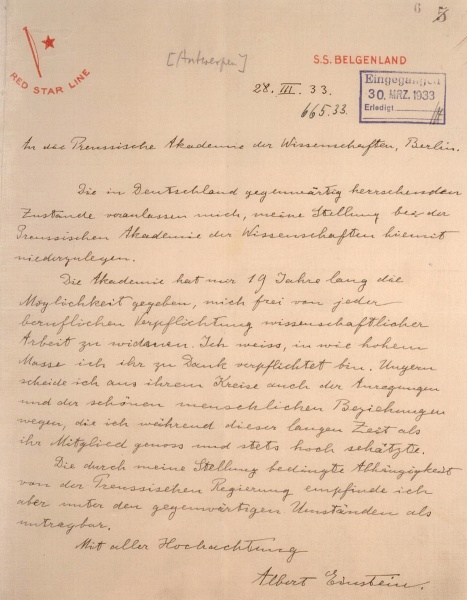 6 3
RED STAR LINE
[Antwerpen]
S.S. BELGENLAND
28. III. 33.
Eingegangen
30. MRZ. 1933
Erledigt
665.33.
An die Preussische Akademie der Wissenschaften, Berlin.
Die in Deutschland gegenwärtig herrschenden
Zustände veranlassen mich, meine Stellung bei der
Preussischen Akademie der Wissenschaften hiemit
niederzulegen.
Die Akademie hat mir 19 Jahre lang die
Möglichkeit gegeben, mich frei von jeder
beruflichen Verpflichtung wissenschaftlicher
Arbeit zu widmen. Ich weiss, in wie hohem
Masse ich ihr zu Dank verpflichtet bin. Ungern
scheide ich aus ihrem Kreise auch der Anregungen
und der schönen menschlichen Beziehungen
wegen, die ich während dieser langen Zeit als
ihr Mitglied genoss und stets hoch schätzte.
Die durch meine Stellung bedingte Abhängigkeit
von der Preussischen Regierung empfinde ich
aber unter den gegenwärtigen Umständen als
untragbar.
Mit aller Hochachtung
Albert Einstein.